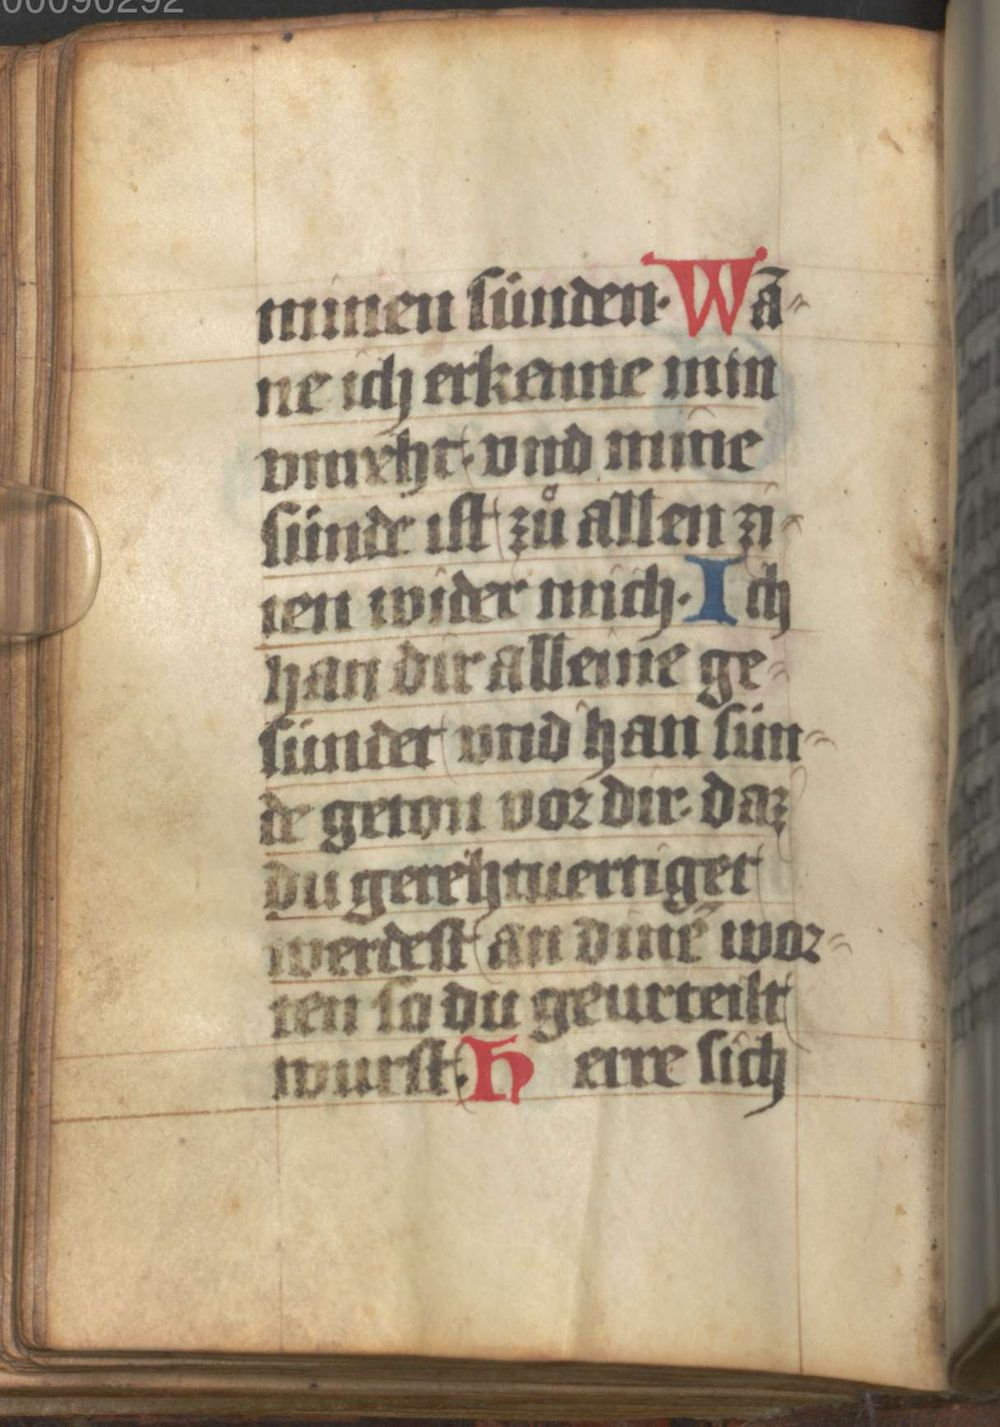 00090292
minen sünden· Wā-
ne ich erkenne min
vnreht· vnd mine
sünde ist zuͦ allen zi-
ten wider mich· Ich
han dir alleine ge-
sündet vnd han sün-
de geton vor dir· daz
du gerehtuertiget
werdest an dinē wor-
ten so du geurteilt
wurst· Herre sich